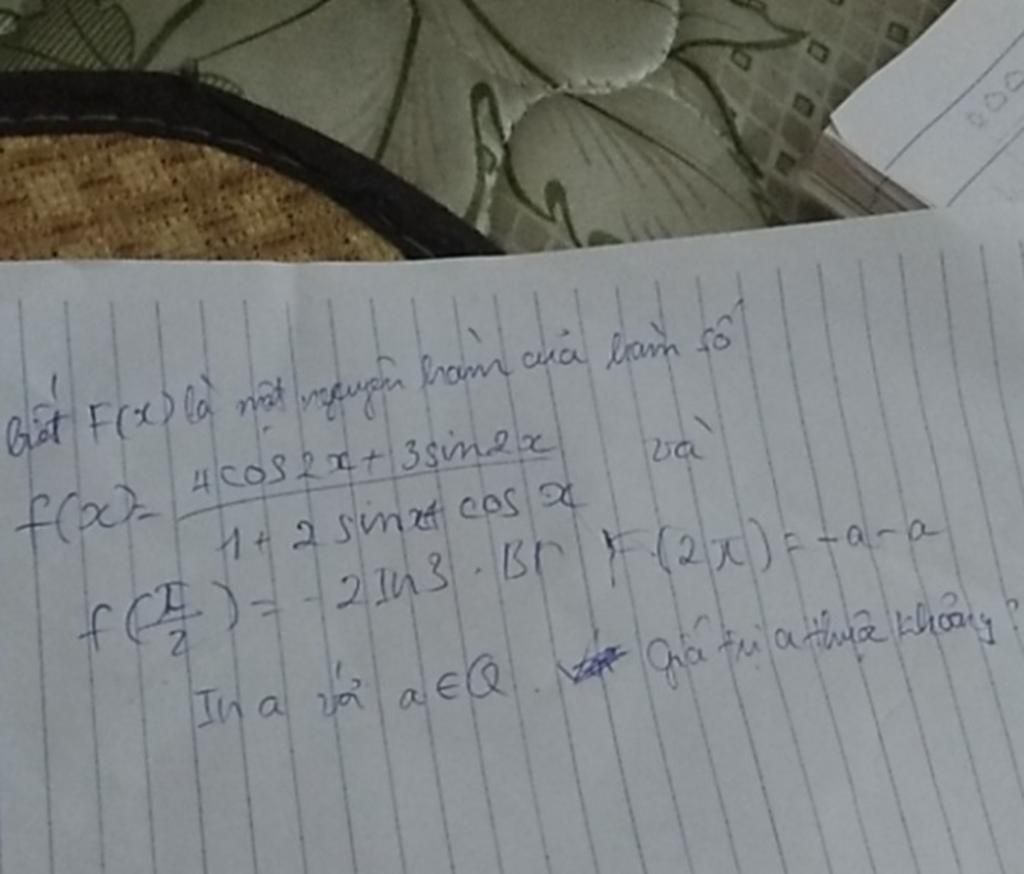 Biết F(x) là một nguyên hàm của hàm số
f(x)= 4cos2x+3sin2x / 1+2sinx+cosx và
f(π/2)=-2ln3. Br F(2π)=-a-a
ln a với a∈Q. Giá trị a thuộc khoảng?